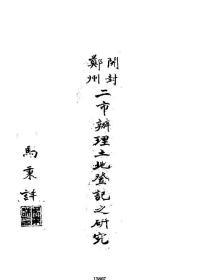 開封
鄭州
二市辦理土地登記之研究
馬秉詳